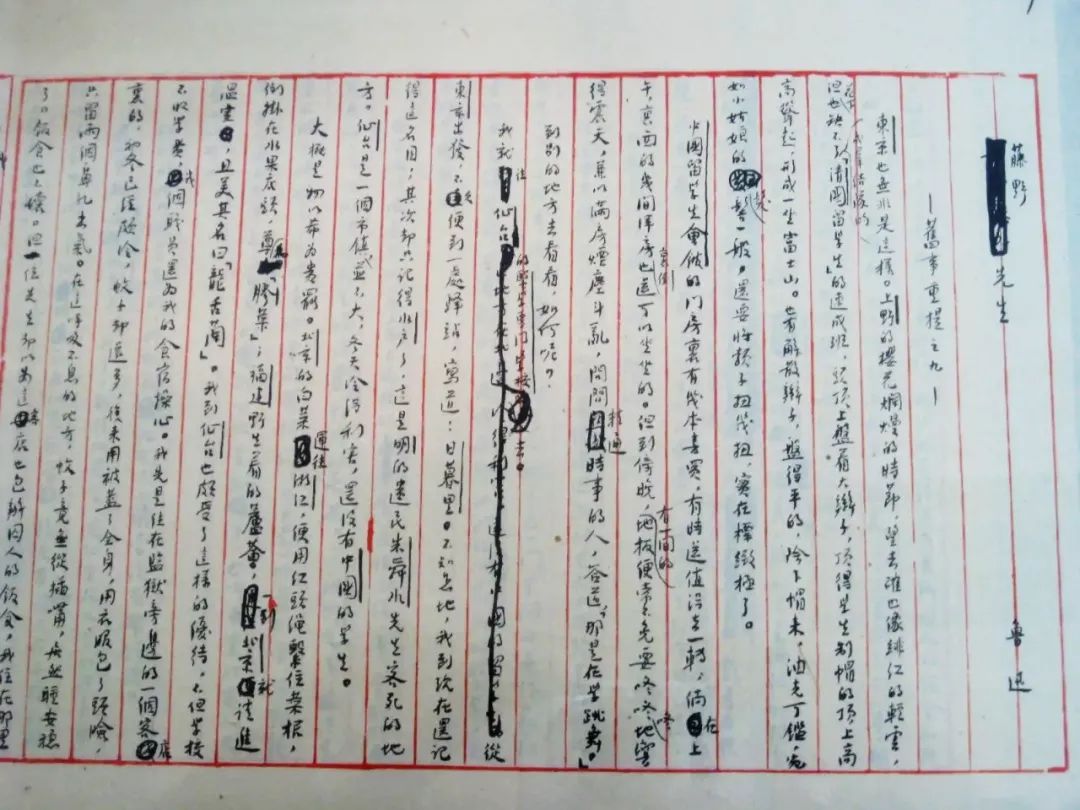 藤野先生
魯迅
—舊事重提之九—
東京也無非是這樣。上野的櫻花爛熳的時節,望去確也像緋紅的輕雲,
但花下也缺不了成群結隊的「清國留學生」的速成班,頭頂上盤着大辮子,頂得學生制帽的頂上高
高聳起,形成一坐富士山。也有解散辮子,盤得平的,除下帽來,油光可鑑,宛
如小姑娘的髮髻一般,還要將頸子扭幾扭,實在標緻極了。
中國留學生會館的门房裏有幾本書買,有時還值得去一轉,倘在上
午,裏面的幾间洋房裏倒也還可以坐坐的。但到傍晚,有一间的地板便常不免要咚咚咚地響
得震天,兼以滿房煙塵斗亂,問問精通時事的人,答道,「那是在學跳舞。」
到別的地方去看看,如何呢?
我就往仙台的醫學專门學校去。從
東京出發,不久便到一處驛站,寫道:日暮里。不知怎地,我到現在還記
得這名目。其次却只記得水户了,這是明的遺民朱舜水先生客死的地
方。仙台是一個市鎮,並不大;冬天冷得利害;還没有中國的學生。
大概是物以希為貴罷。北京的白菜運往浙江,便用紅頭繩繫住菜根,
倒掛在水果店頭,尊為「膠菜」;福建野生着的蘆薈,一到北京就請進
温室,且美其名曰「龍舌蘭」。我到仙台也頗受了這樣的優待,不但學校
不收學費,幾個職員還為我的食宿操心。我先是住在監獄旁邊的一個客店
裏的,初冬已經頗冷,蚊子却還多,後來用被蓋了全身,用衣服包了頭臉,
只留兩個鼻孔出氣。在這呼吸不息的地方,蚊子竟無從插嘴,居然睡安穩
了。飯食也不壞。但一位先生却以為這客店也包辦囚人的飯食,我住在那里